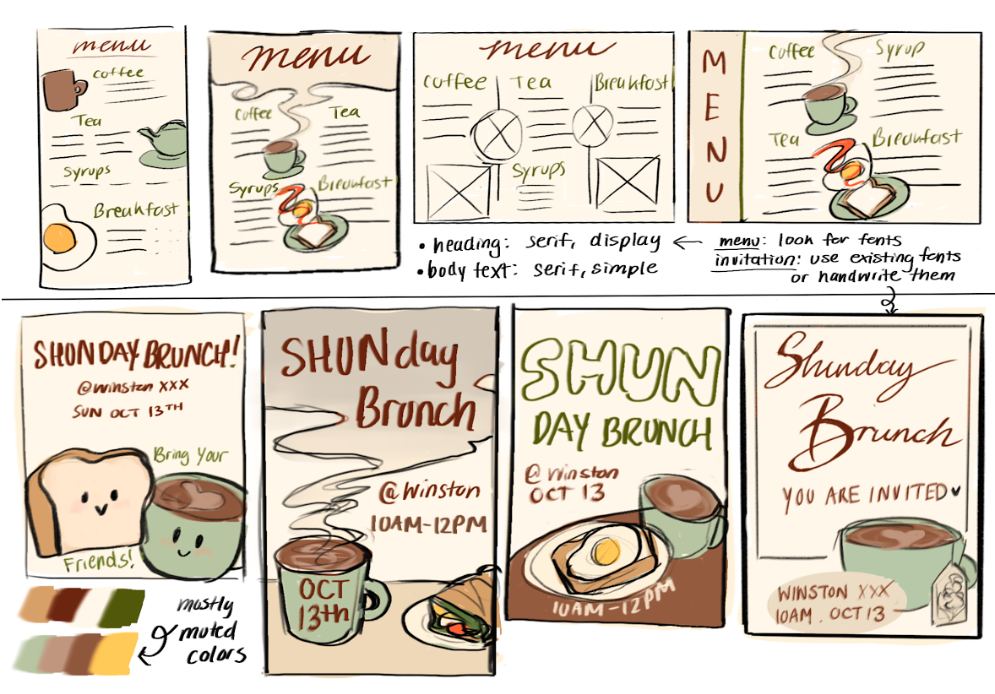 menu
coffee
Tea
Syrups
Breakfast
menu
Coffee
Tea
Syrups
Breakfast
menu
Coffee
Tea
Breakfast
Syrups
MENU
Coffee
Syrup
Tea
Breakfast
• heading: serif, display ← menu: look for fents
• body text: serif, simple
invitation: use existing fonts
or handwrite them
SHUNDAY BRUNCH!
@Winston XXX
SUN OCT 13TH
Bring Your
Friends!
SHUNday
Brunch
@Winston
10AM-12PM
OCT
13th
SHUN
DAY BRUNCH
@Winston
OCT 13
10AM-12PM
Shunday
Brunch
YOU ARE INVITED♥
WINSTON XXX
10AM. OCT 13
mostly
muted
colors